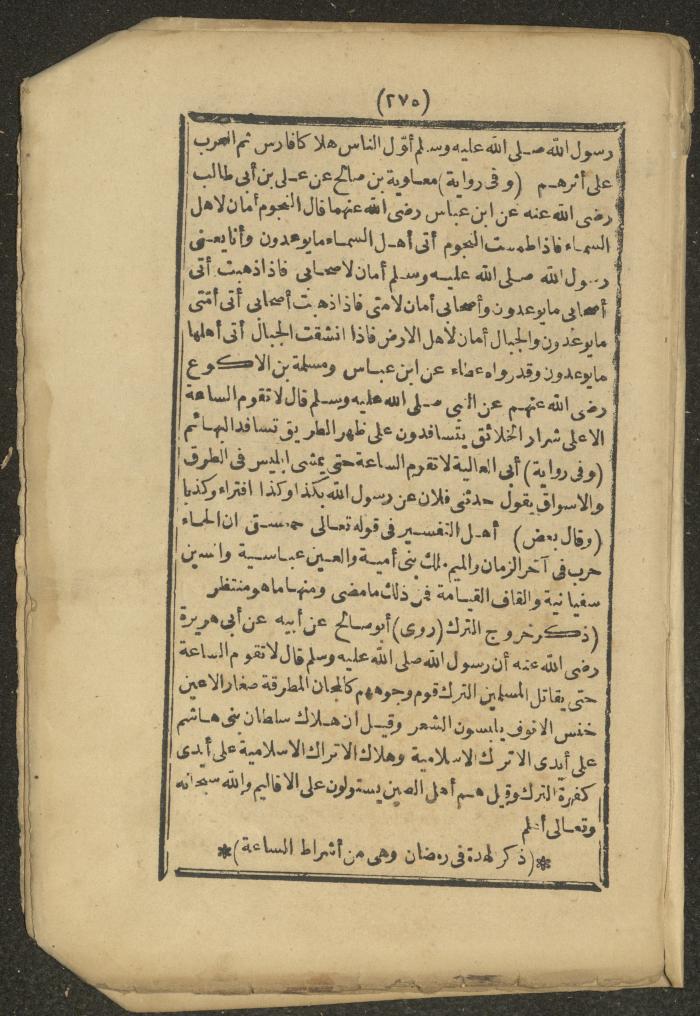 (٢٧٥)
رسول الله صلى الله عليه وسلم أول الناس هلاكا فارس ثم العرب
على أثرهم (وفى رواية) معاوية بن صالح عن على بن أبى طالب
رضى الله عنه عن ابن عباس رضى الله عنهما قال النجوم أمان لاهل
السماء فاذا طمست النجوم أتى أهل السماء ما يوعدون وأنا يعنى
رسول الله صلى الله عليه وسلم أمان لاصحابى فاذا ذهبت أتى
أصحابى ما يوعدون وأصحابى أمان لامتى فاذا ذهبت أصحابى أتى أمتى
ما يوعدون والجبال أمان لاهل الارض فاذا انشقت الجبال أتى أهلها
ما يوعدون وقد رواه عطاء عن ابن عباس ومسلمة بن الاكوع
رضى الله عنهم عن النبى صلى الله عليه وسلم قال لا تقوم الساعة
الا على شرار الخلائق يتسافدون على ظهر الطريق تسافد البهائم
(وفى رواية) أبى العالية لا تقوم الساعة حتى يمشى ابليس فى الطرق
والاسواق يقول حدثنى فلان عن رسول الله بكذا وكذا افتراء وكذبا
(وقال بعض) أهل التفسير فى قوله تعالى حمعسق ان الحاء
حرب فى آخر الزمان والميم ملك بنى أمية والعين عباسية والسين
سفيانية والقاف القيامة فمن ذلك ما مضى ومنها ما هو منتظر
(ذكر خروج الترك (روى) أبو صالح عن أبيه عن أبى هريرة
رضى الله عنه أن رسول الله صلى الله عليه وسلم قال لا تقوم الساعة
حتى يقاتل المسلمين الترك قوم وجوههم كالمجان المطرقة صغار الاعين
خنس الانوف يلبسون الشعر وقيل ان هلاك سلطان بنى هاشم
على أيدى الاتراك الاسلامية وهلاك الاتراك الاسلامية على أيدى
كفرة الترك وقيل هم أهل الصين يستولون على الاقاليم والله سبحانه
وتعالى أعلم
*(ذكر لهدة فى رمضان وهى من أشراط الساعة)*